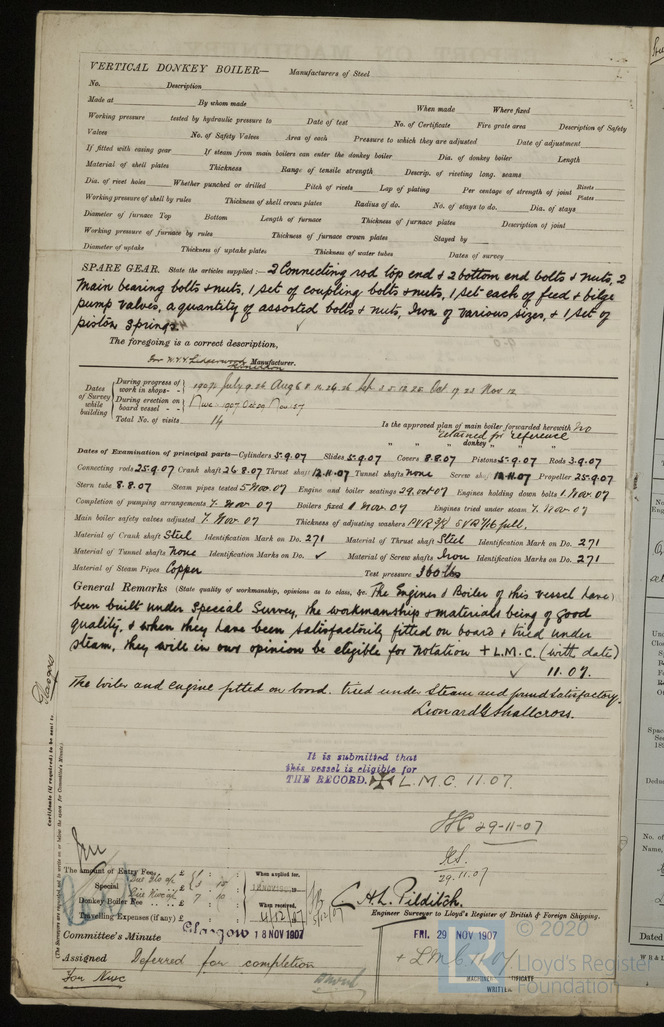 VERTICAL DONKEY BOILER— Manufacturers of Steel
No. Description
Made at By whom made When made Where fixed
Working pressure tested by hydraulic pressure to Date of test No. of Certificate Fire grate area Description of Safety
Valves No. of Safety Valves Area of each Pressure to which they are adjusted Date of adjustment
If fitted with easing gear If steam from main boilers can enter the donkey boiler Dia. of donkey boiler Length
Material of shell plates Thickness Range of tensile strength Descrip. of riveting long. seams
Dia. of rivet holes Whether punched or drilled Pitch of rivets Lap of plating Per centage of strength of joint Rivets Plates
Working pressure of shell by rules Thickness of shell crown plates Radius of do. No. of stays to do. Dia. of stays
Diameter of furnace Top Bottom Length of furnace Thickness of furnace plates Description of joint
Working pressure of furnace by rules Thickness of furnace crown plates Stayed by
Diameter of uptake Thickness of uptake plates Thickness of water tubes Dates of survey
SPARE GEAR. State the articles supplied:— 2 Connecting rod top end & 2 bottom end bolts & nuts, 2
main bearing bolts & nuts, 1 set of coupling bolts & nuts, 1 set each of feed & bilge
pump valves, a quantity of assorted bolts & nuts, Iron of various sizes, & 1 set of
piston springs.
The foregoing is a correct description,
For W. V. V. Lidgerwood Manufacturer.
Dates of Survey while building
During progress of work in shops - - 1907: July 9. 26 Aug 6 8 14. 26. 26 Sep 3 5. 12. 25 Oct 17 23 Nov 12
During erection on board vessel - - Nwc. 1907 Oct 29 Nov. 27
Total No. of visits 14
Is the approved plan of main boiler forwarded herewith No
retained for reference
" " " donkey " " "
Dates of Examination of principal parts—Cylinders 5.9.07 Slides 5.9.07 Covers 8.8.07 Pistons 5.9.07 Rods 3.9.07
Connecting rods 25.9.07 Crank shaft 26.8.07 Thrust shaft 12.11.07 Tunnel shafts None Screw shaft 12.11.07 Propeller 25.9.07
Stern tube 8.8.07 Steam pipes tested 5 Nov. 07 Engine and boiler seatings 29. oct 07 Engines holding down bolts 1 Nov. 07
Completion of pumping arrangements 7. Nov. 07 Boilers fixed 1 Nov. 07 Engines tried under steam 7. Nov. 07
Main boiler safety valves adjusted 7. Nov. 07 Thickness of adjusting washers
Material of Crank shaft Steel Identification Mark on Do. 271 Material of Thrust shaft Steel Identification Mark on Do. 271
Material of Tunnel shafts None Identification Marks on Do. ✓ Material of Screw shafts Iron Identification Marks on Do. 271
Material of Steam Pipes Copper Test pressure 360 lbs
General Remarks (State quality of workmanship, opinions as to class, &c. The Engines & Boiler of this vessel have
been built under special survey, the workmanship & materials being of good
quality, & when they have been satisfactorily fitted on board & tried under
steam, they will in our opinion be eligible for notation + L.M.C. (with date)
11. 07.
The boiler and engine fitted on board. tried under steam and found satisfactory.
Leonard G Shallcross.
It is submitted that
this vessel is eligible for
THE RECORD. ✠ L.M.C. 11.07.
29-11-07
29.11.07
Glasgow
Certificate (if required) to be sent to
(The Surveyors are requested not to write on or below the space for Committee's Minute.)
The amount of Entry Fee
Special
Donkey Boiler Fee
Travelling Expenses (if any) £
When applied for,
When received,
4/12/07
A. L. Pilditch.
Engineer Surveyor to Lloyd's Register of British & Foreign Shipping.
Committee's Minute Glasgow 18 NOV 1907 FRI. 29 NOV 1907
Assigned Deferred for completion + LMC 11.07
For Nwc
MACHINERY CERTIFICATE
WRITTEN
© 2020
Lloyd's Register
Foundation